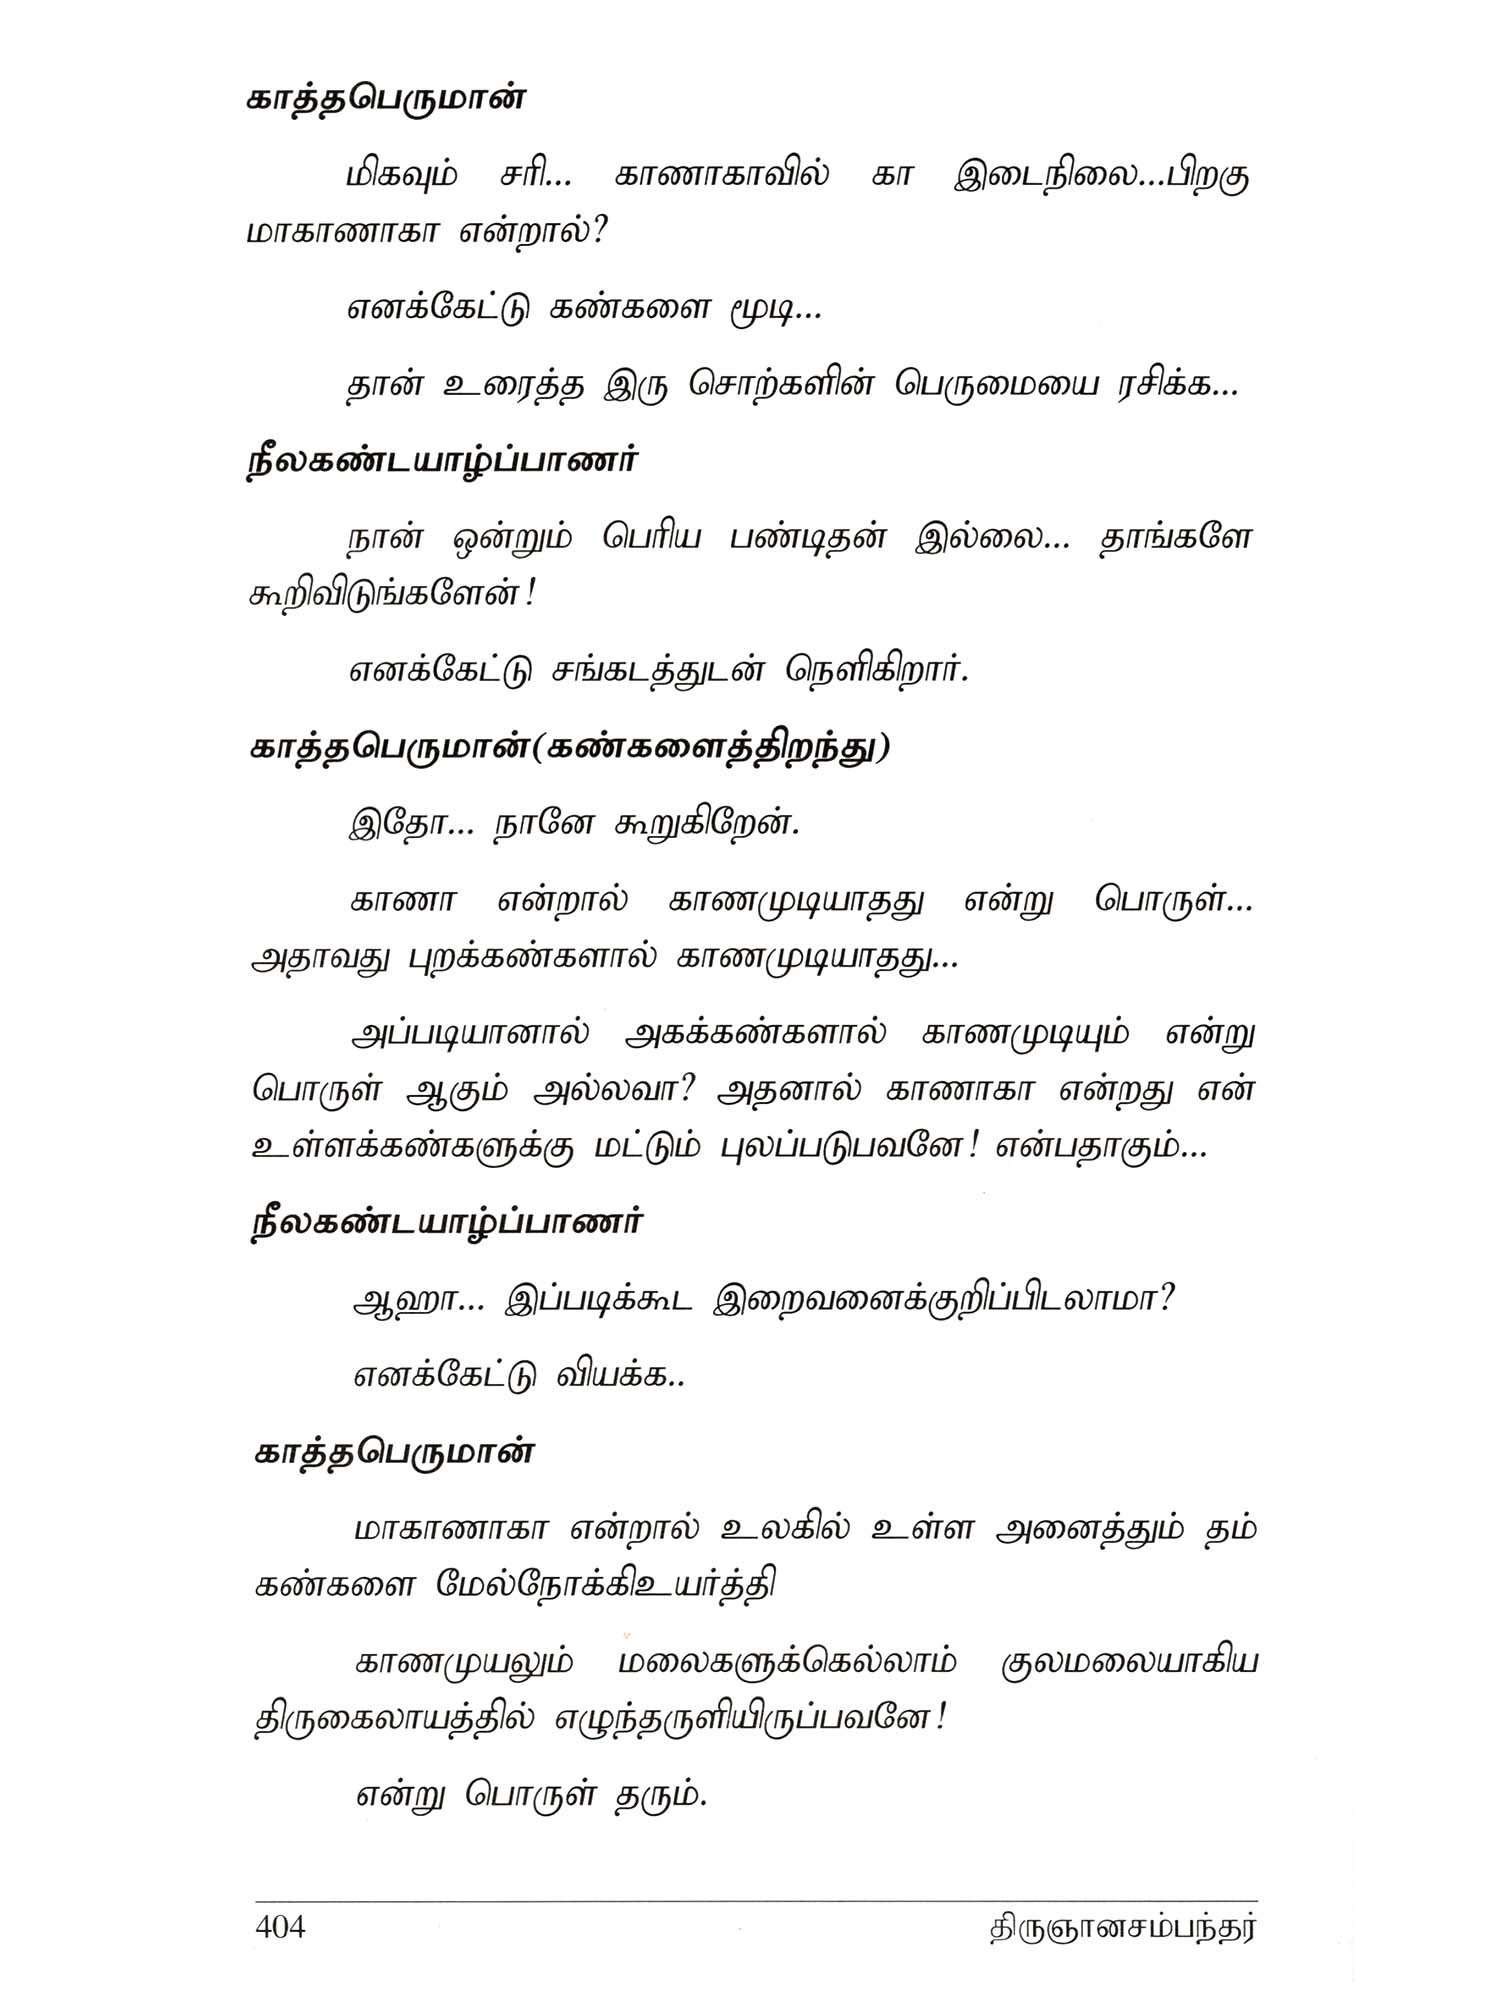 காத்தபெருமான்
மிகவும் சரி... காணாகாவில் கா இடைநிலை...பிறகு
மாகாணாகா என்றால்?
எனக்கேட்டு கண்களை மூடி...
தான் உரைத்த இரு சொற்களின் பெருமையை ரசிக்க...
நீலகண்டயாழ்ப்பாணர்
நான் ஒன்றும் பெரிய பண்டிதன் இல்லை... தாங்களே
கூறிவிடுங்களேன்!
எனக்கேட்டு சங்கடத்துடன் நெளிகிறார்.
காத்தபெருமான்(கண்களைத்திறந்து)
இதோ... நானே கூறுகிறேன்.
காணா என்றால் காணமுடியாதது என்று பொருள்...
அதாவது புறக்கண்களால் காணமுடியாதது...
அப்படியானால் அகக்கண்களால் காணமுடியும் என்று
பொருள் ஆகும் அல்லவா? அதனால் காணாகா என்றது என்
உள்ளக்கண்களுக்கு மட்டும் புலப்படுபவனே! என்பதாகும்...
நீலகண்டயாழ்ப்பாணர்
ஆஹா... இப்படிக்கூட இறைவனைக்குறிப்பிடலாமா?
எனக்கேட்டு வியக்க..
காத்தபெருமான்
மாகாணாகா என்றால் உலகில் உள்ள அனைத்தும் தம்
கண்களை மேல்நோக்கிஉயர்த்தி
காணமுயலும் மலைகளுக்கெல்லாம் குலமலையாகிய
திருகைலாயத்தில் எழுந்தருளியிருப்பவனே!
என்று பொருள் தரும்.
404 திருஞானசம்பந்தர்